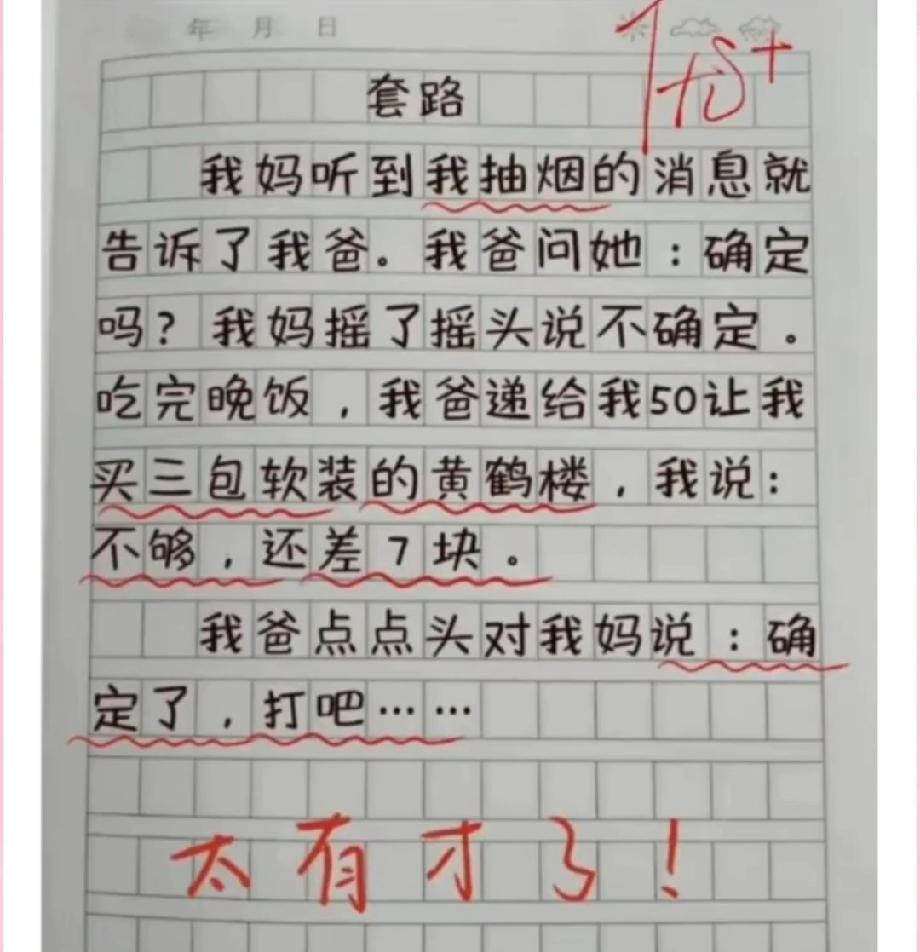 年 月 日
优+
套路
我妈听到我抽烟的消息就
告诉了我爸。我爸问她：确定
吗？我妈摇了摇头说不确定。
吃完晚饭，我爸递给我50让我
买三包软装的黄鹤楼，我说：
不够，还差7块。
我爸点点头对我妈说：确
定了，打吧……
太有才了！